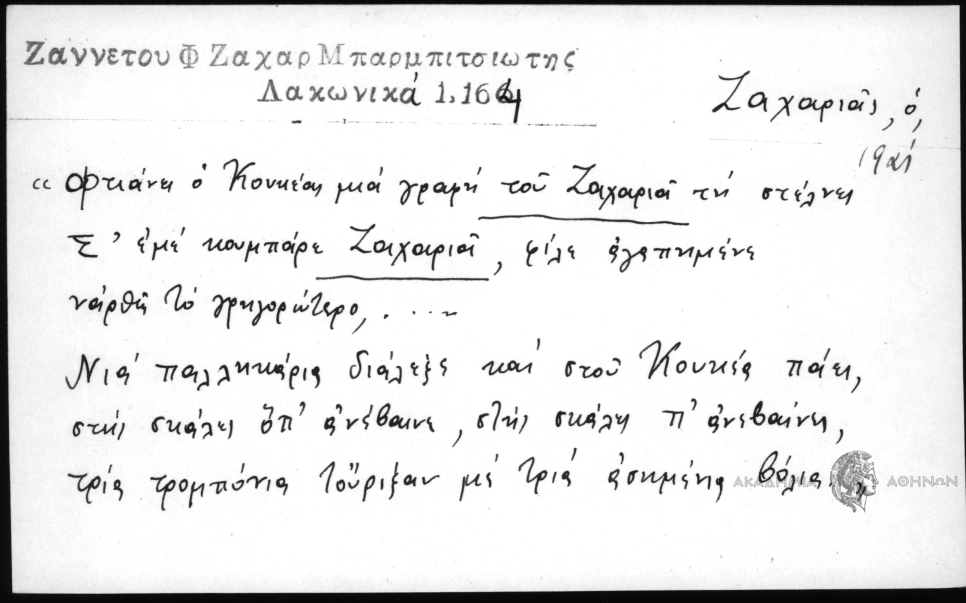 Ζαννετου Φ Ζαχαρ Μπαρμπιτσιωτης
Λακωνικά 1.164
Ζαχαριᾶς, ὁ,
1921
«Φτιάνει ὁ Κουκέας μιά γραφή τοῦ Ζαχαριᾶ τή στέλνει
Σ' ἐμέ κουμπάρε Ζαχαριᾶ, φίλε ἀγαπημένε
νάρθῃ τό γρηγορώτερο, ....."
Νιά παλληκάρια διάλεξε καί στοῦ Κουκέα πάει,
στίς σκάλες ὅπ' ἀνέβαινε, στίς σκάλες π' ἀνεβαίνει,
τρία τρομπόνια τοὔριξαν μέ τριά ἀσημένια βόλια.»
ΑΚΑΔΗΜΙΑ ΑΘΗΝΩΝ